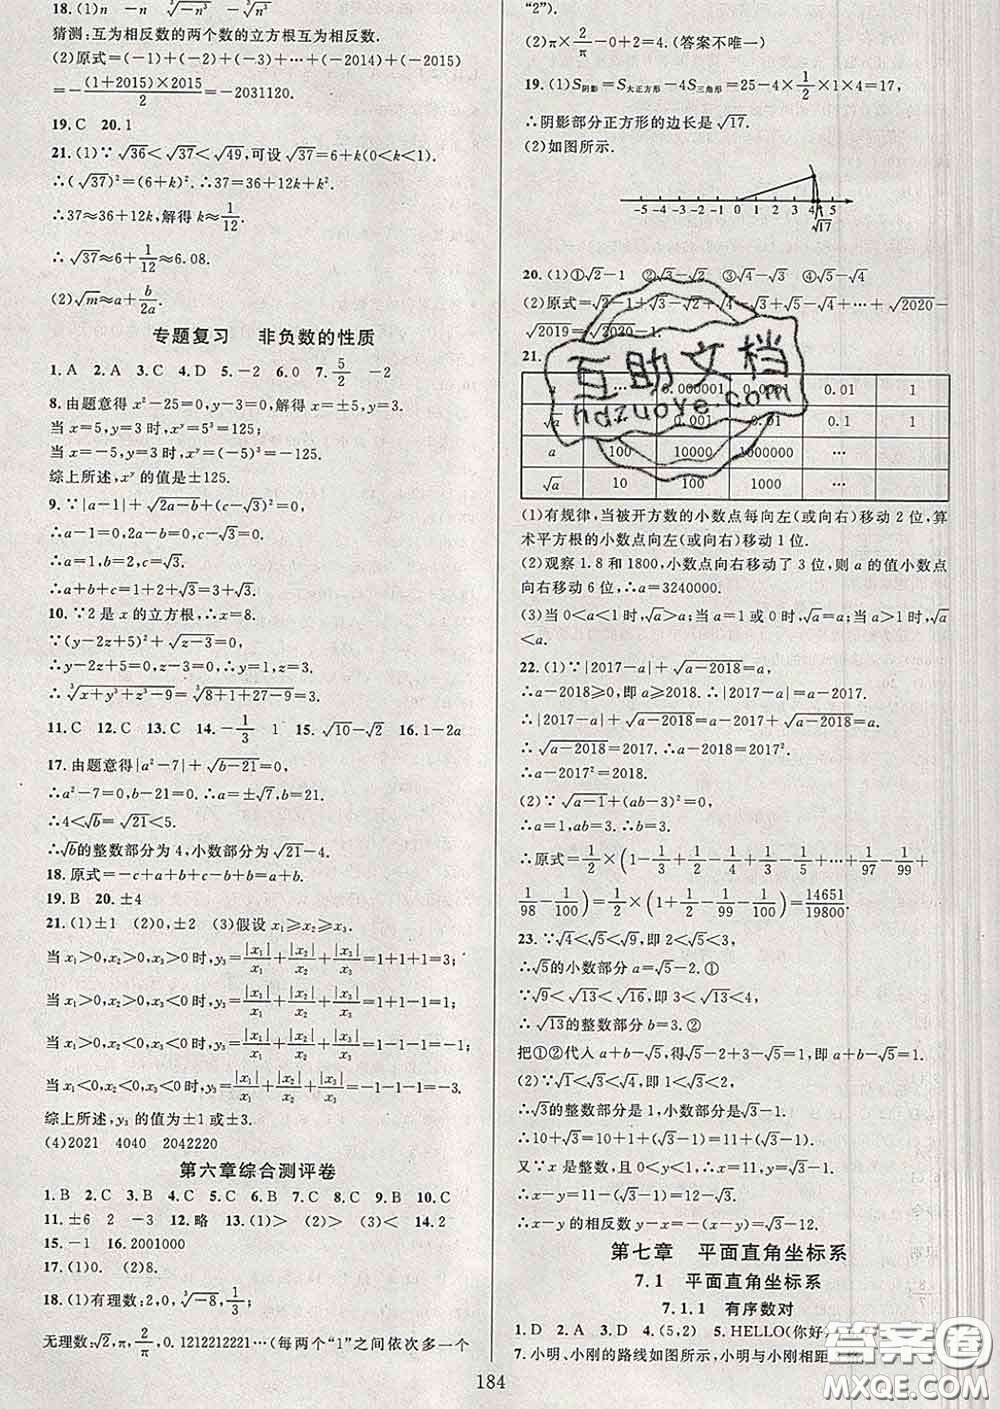 18.(1)n -n ∛n³ ∛-n³
猜测:互为相反数的两个数的立方根互为相反数.
(2)原式=(-1)+(-2)+(-3)+…+(-2014)+(-2015)
=-(1+2015)×2015/2=-2031120.
19.C 20.1
21.(1)∵√36<√37<√49,可设√37=6+k(0<k<1).
∴(√37)²=(6+k)².∴37=36+12k+k².
∴37≈36+12k,解得 k≈1/12.
∴√37≈6+1/12≈6.08.
(2)√m≈a+b/2a.
专题复习 非负数的性质
1.A 2.A 3.C 4.D 5.-2 6.0 7.5/2 -2
8.由题意得 x²-25=0,y-3=0,解得 x=±5,y=3.
当 x=5,y=3 时,xʸ=5³=125;
当 x=-5,y=3 时,xʸ=(-5)³=-125.
综上所述,xʸ 的值是±125.
9.∵|a-1|+√2a-b+(c-√3)²=0,
∴a-1=0,2a-b=0,c-√3=0.
∴a=1,b=2,c=√3.
∴a+b+c=1+2+√3=3+√3.
10.∵2 是 x 的立方根,∴x=8.
∵(y-2z+5)²+√z-3=0,
∴y-2z+5=0,z-3=0.∴y=1,z=3.
∴∛x+y³+z³-9=∛8+1+27-9=3.
11.C 12.C 13.C 14.-1/3 1 15.√10-√2 16.1-2a
17.由题意得|a²-7|+√b-21=0,
∴a²-7=0,b-21=0.∴a=±√7,b=21.
∴4<√b=√21<5.
∴√b的整数部分为 4,小数部分为√21-4.
18.原式=-c+a+b+c=a+b.
19.B 20.±4
21.(1)±1 (2)0,±2 (3)假设 x₁≥x₂≥x₃.
当 x₁>0,x₂>0,x₃>0 时,y₃=|x₁|/x₁+|x₂|/x₂+|x₃|/x₃=1+1+1=3;
当 x₁>0,x₂>0,x₃<0 时,y₃=|x₁|/x₁+|x₂|/x₂+|x₃|/x₃=1+1-1=1;
当 x₁>0,x₂<0,x₃<0 时,y₃=|x₁|/x₁+|x₂|/x₂+|x₃|/x₃=1-1-1=-1;
当 x₁<0,x₂<0,x₃<0 时,y₃=|x₁|/x₁+|x₂|/x₂+|x₃|/x₃=-1-1-1=-3.
综上所述,y₃ 的值为±1 或±3.
(4)2021 4040 2042220
第六章综合测评卷
1.B 2.C 3.B 4.D 5.C 6.B 7.B 8.C 9.B 10.C
11.±6 2 -3 12.略 13.(1)> (2)> (3)< 14.2
15.-1 16.2001000
17.(1)0. (2)8.
18.(1)有理数:2,0,∛-8,1/3;
无理数:√2,π,2/π,0.1212212221…(每两个“1”之间依次多一个
“2”).
(2)π×2/π-0+2=4.(答案不唯一)
19.(1)S阴影=S大正方形-4S三角形=25-4×1/2×1×4=17,
∴阴影部分正方形的边长是√17.
(2)如图所示.
-5 -4 -3 -2 -1 0 1 2 3 4 5
√17
20.(1)①√2-1 ②√3-√2 ③√4-√3 ④√5-√4
(2)原式=√2-1+√3-√2+√4-√3+√5-√4+…+√2020-
√2019=√2020-1.
21.
a … 0.000001 0.0001 0.01 1
√a … 0.001 0.01 0.1 1
a 100 10000 1000000 …
√a 10 100 1000 …
(1)有规律,当被开方数的小数点每向左(或向右)移动 2 位,算
术平方根的小数点向左(或向右)移动 1 位.
(2)观察 1.8 和 1800,小数点向右移动了 3 位,则 a 的值小数点
向右移动 6 位,∴a=3240000.
(3)当 0<a<1 时,√a>a;当 a=1 或 0 时,√a=a;当 a>1 时,√a
<a.
22.(1)∵|2017-a|+√a-2018=a,
∴a-2018≥0,即 a≥2018.∴|2017-a|=a-2017.
∴|2017-a|+√a-2018=a-2017+√a-2018=a.
∴√a-2018=2017.∴a-2018=2017².
∴a-2017²=2018.
(2)∵√a-1+(ab-3)²=0,
∴a=1,ab=3.∴b=3.
∴原式=1/2×(1-1/3+1/2-1/4+1/3-1/5+…+1/97-1/99+
1/98-1/100)=1/2×(1+1/2-1/99-1/100)=14651/19800.
23.∵√4<√5<√9,即 2<√5<3,
∴√5的小数部分 a=√5-2.①
∵√9<√13<√16,即 3<√13<4,
∴√13的整数部分 b=3.②
把①②代入 a+b-√5,得√5-2+3-√5=1,即 a+b-√5=1.
(2)∵√1<√3<√4,即 1<√3<2,
∴√3的整数部分是 1,小数部分是√3-1.
∴10+√3=10+1+(√3-1)=11+(√3-1).
又∵x 是整数,且 0<y<1,∴x=11,y=√3-1.
∴x-y=11-(√3-1)=12-√3.
∴x-y 的相反数-(x-y)=√3-12.
第七章 平面直角坐标系
7.1 平面直角坐标系
7.1.1 有序数对
1.D 2.A 3.D 4.(5,2) 5.HELLO(你好)
7.小明、小刚的路线如图所示,小明与小刚相距
184
互助文档
hdzuoye.com
答案圈
MXQE.COM